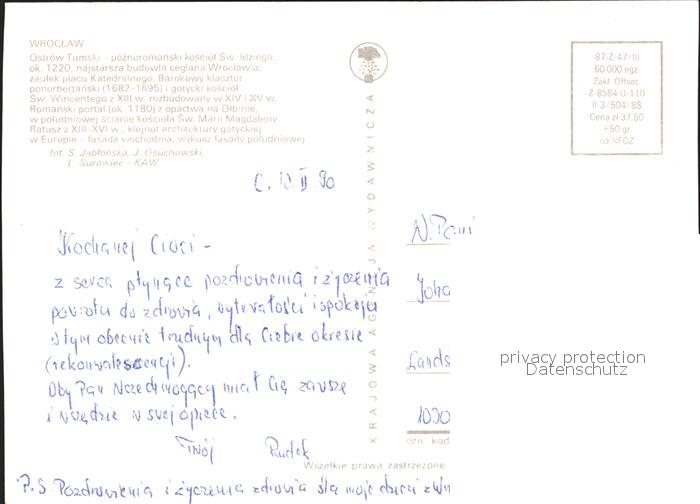 WROCŁAW
Ostrów Tumski – późnoromański kościół Św. Idziego,
ok. 1220, najstarsza budowla ceglana Wrocławia;
zaułek placu Katedralnego. Barokowy klasztor
ponorbertański (1682–1695) i gotycki kościół
Św. Wincentego z XIII w. rozbudowany w XIV i XV w.
Romański portal (ok. 1180) z opactwa na Ołbinie,
w południowej ścianie kościoła Św. Marii Magdaleny
Ratusz z XIII–XVI w., klejnot architektury gotyckiej
w Europie – fasada wschodnia, wykusz fasady południowej
fot. S. Jabłońska, J. Osuchowski,
L. Surowiec – KAW
KRAJOWA AGENCJA WYDAWNICZA
87-Z-47/III
60 000 egz.
Zakł. Offset.
Z-8584 U-110
II-3/504/88
Cena zł 37,50
+50 gr
na NFOZ
II 90
Kochanej Cioci –
z serca płynące pozdrowienia i życzenia
powrotu do zdrowia, wytrwałości i spokoju
w tym obecnie trudnym dla Ciebie okresie
(rekonwalescencji).
Oby Pan Wszechmogący miał Cię zawsze
i wszędzie w swej opiece.
Twój Rudek
P.S. Pozdrowienia i życzenia zdrowia ślą moje dzieci z
W. Pani
Joha
Lands
1030
ozn. kod
Wszelkie prawa zastrzeżone
privacy protection
Datenschutz